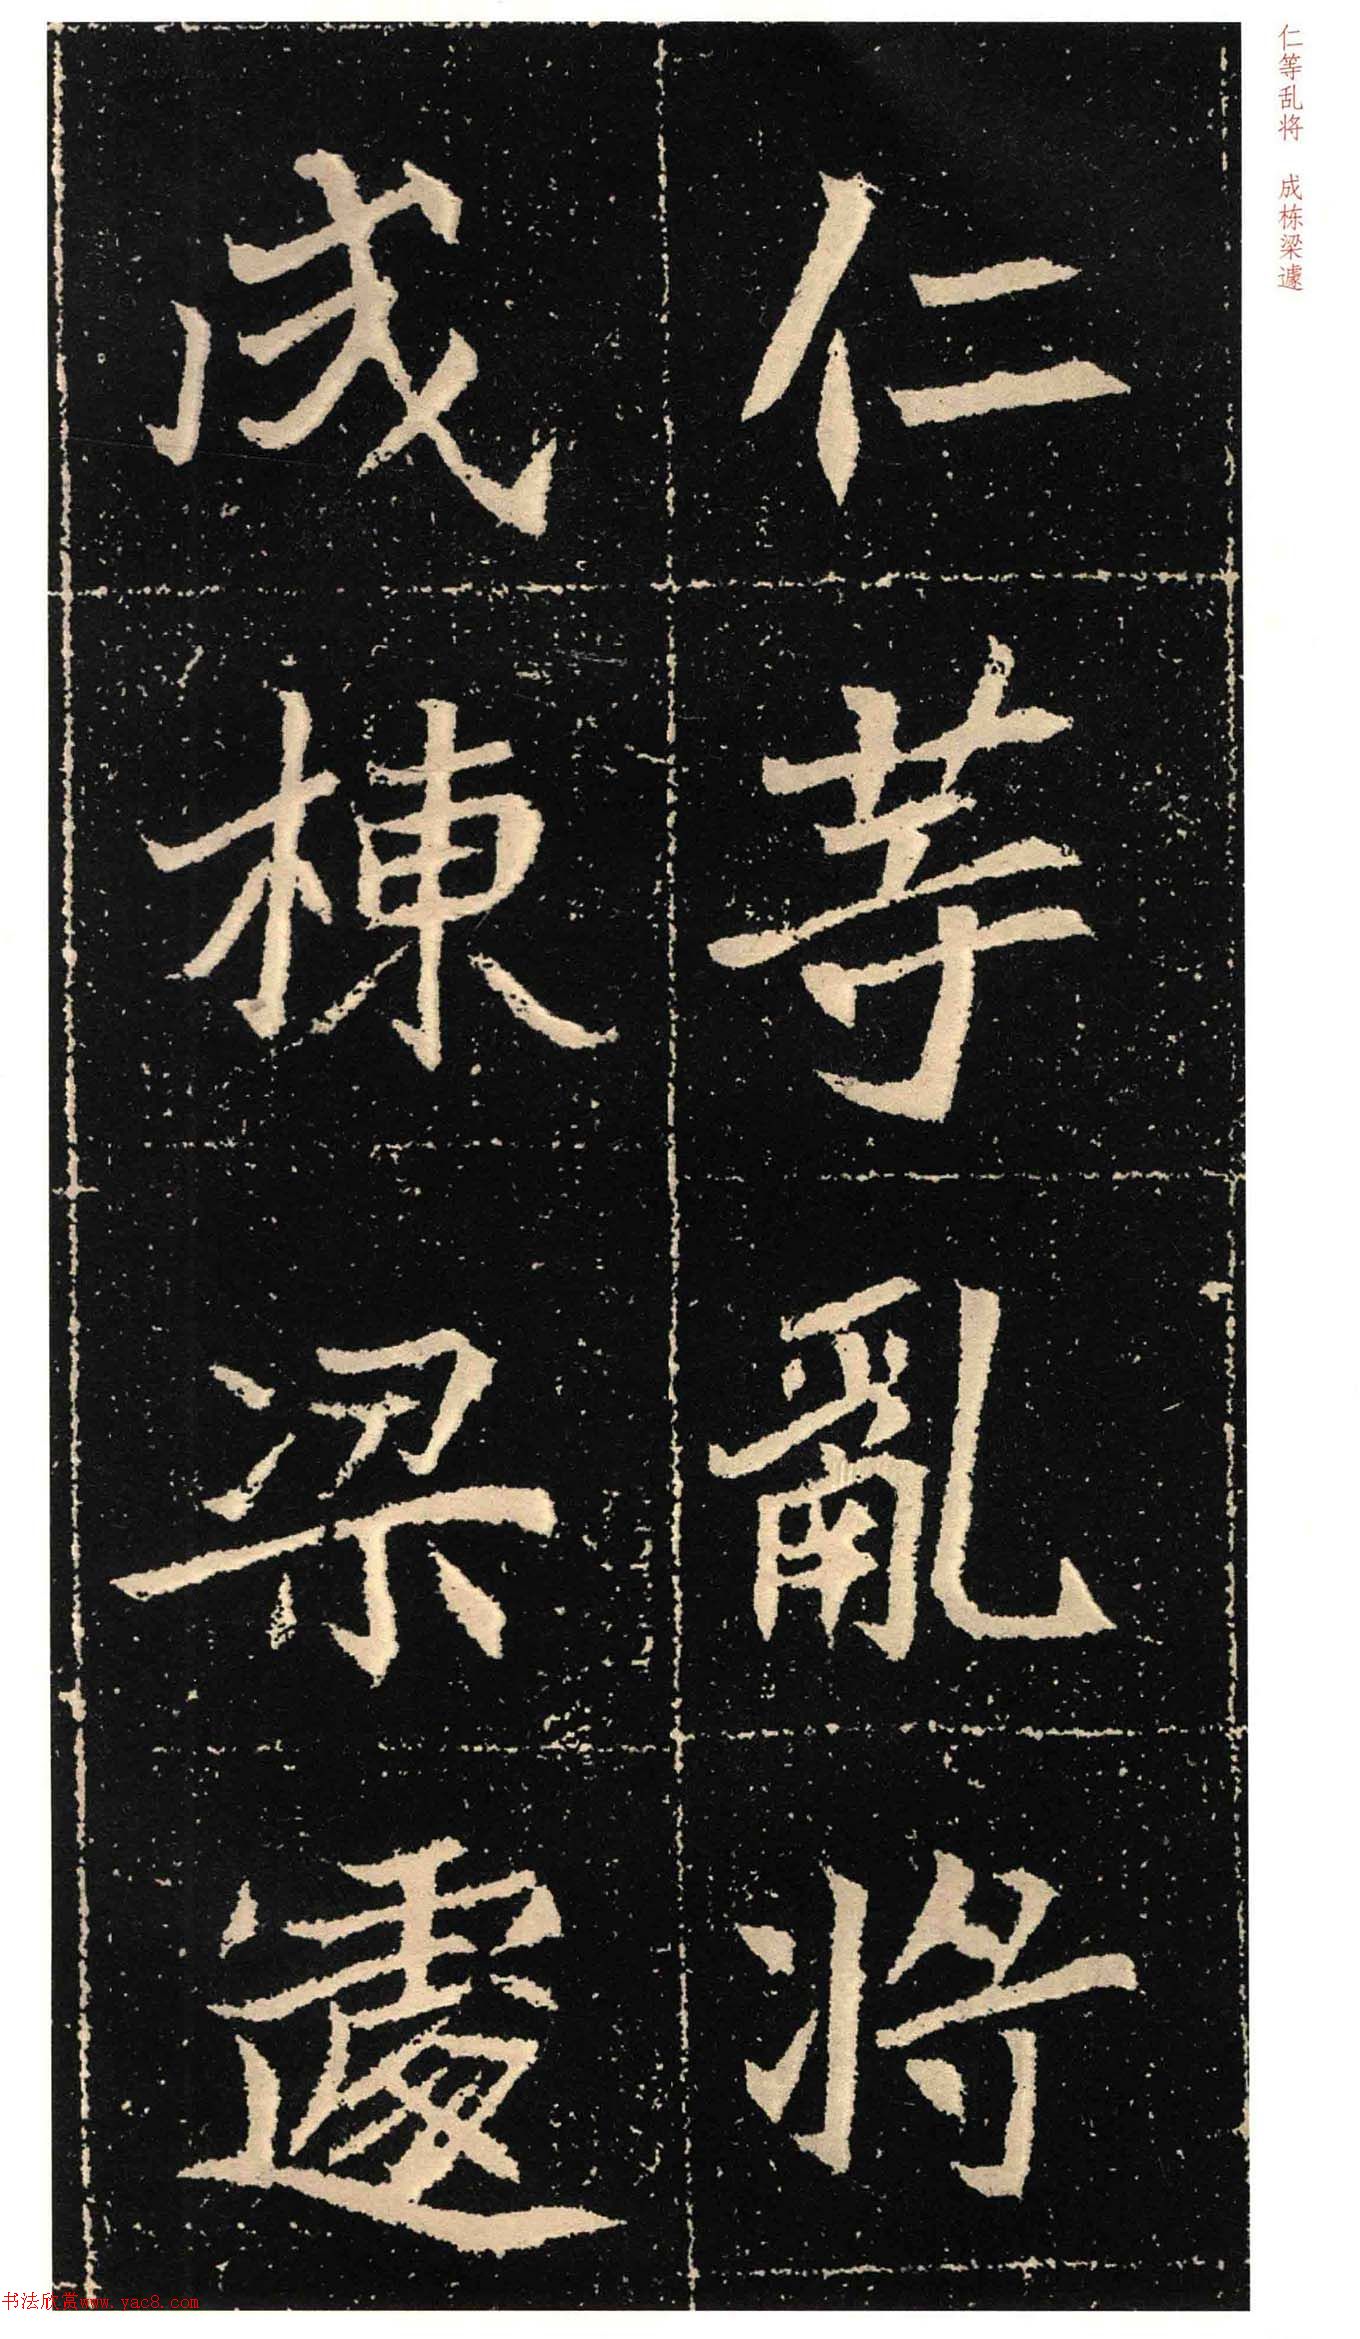 仁等亂將
成棟梁遽
仁等乱将 成栋梁遽
书法欣赏www.yac8.com